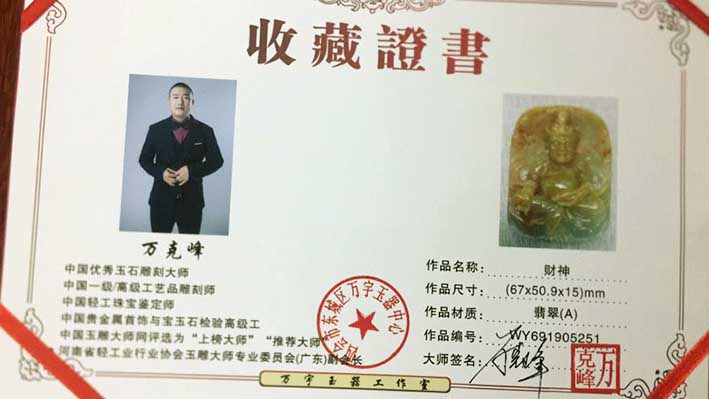 收藏證書
万克峰
中国优秀玉石雕刻大师
中国一级/高级工艺品雕刻师
中国轻工珠宝鉴定师
中国贵金属首饰与宝玉石检验高级工
中国玉雕大师网评选为“上榜大师” “推荐大师”
河南省轻工业行业协会玉雕大师专业委员会(广东)副会长
作品名称: 财神
作品尺寸: (67x50.9x15)mm
作品材质: 翡翠(A)
作品编号: WY691905251
大师签名:
万克峰
市东城区万宇玉器中心
万宇玉器工作室